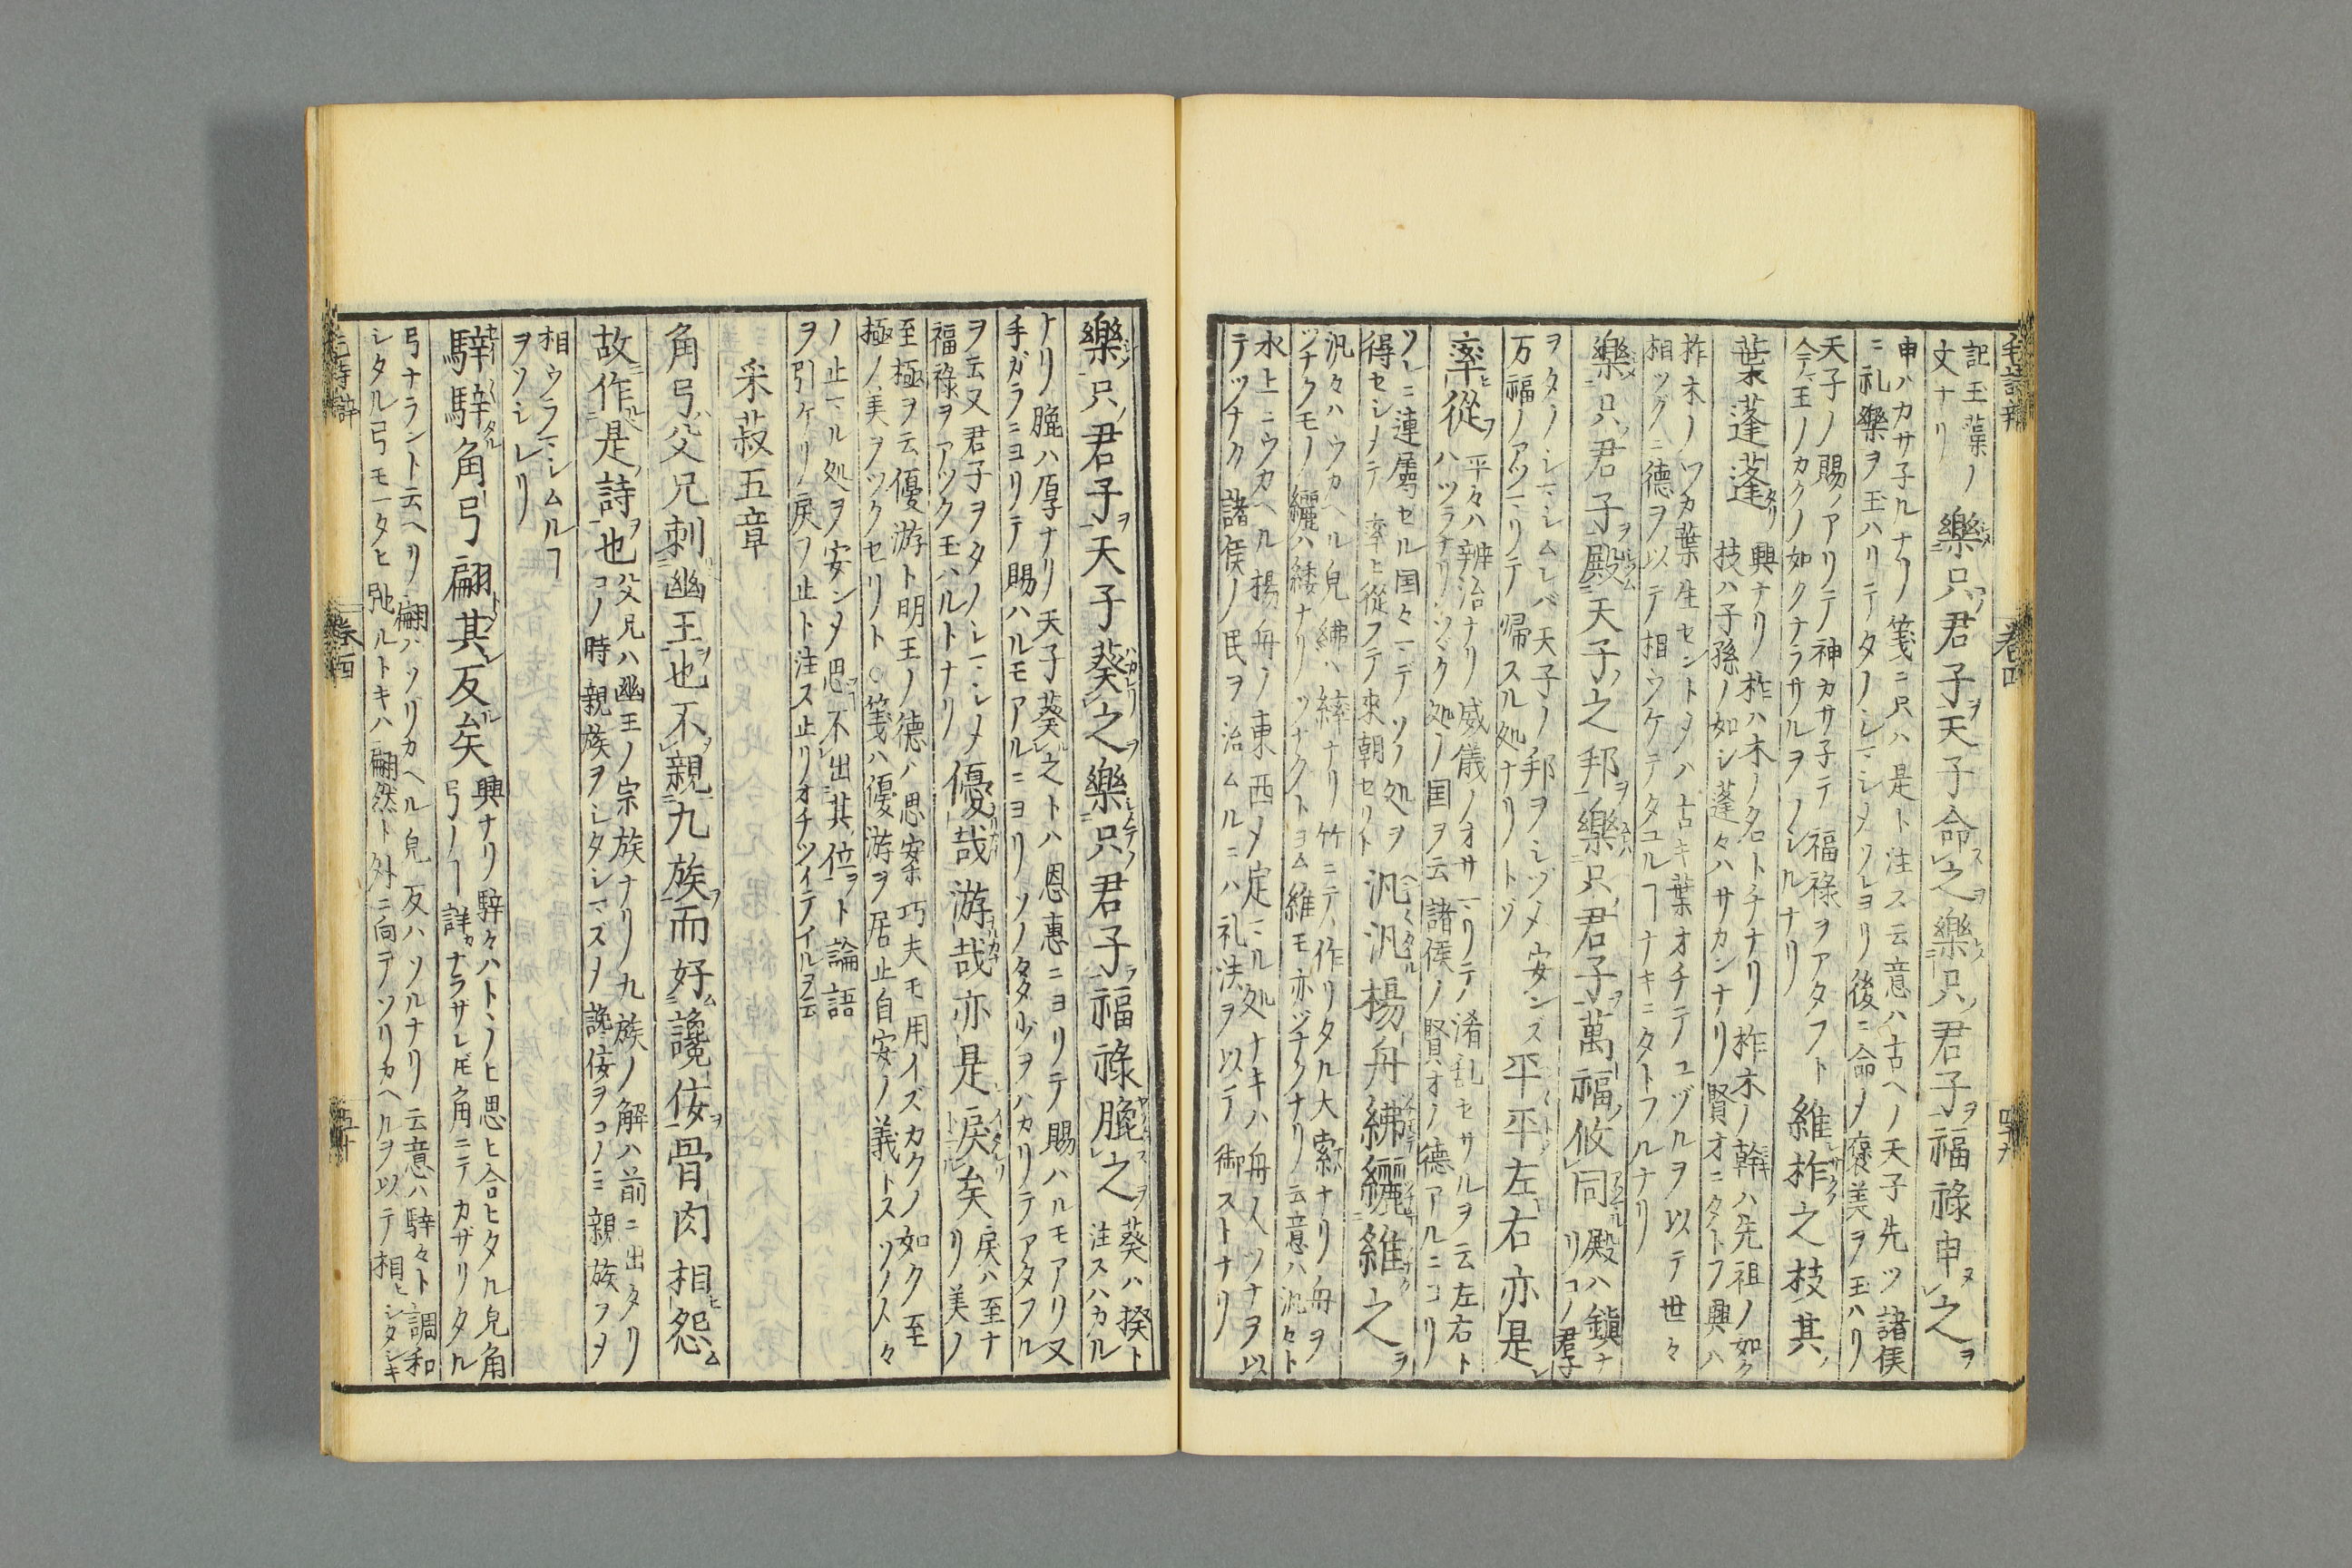 毛詩辨 卷四
記玉藻ノ
文ナリ
樂只君子天子命之樂只君子福祿申之
申ハカサ子ルナリ箋ニ只ハ是ト注ス云意ハ古ヘノ天子先ツ諸侯
ニ礼樂ヲ玉ハリテタノシマシメソレヨリ後ニ命メ褒美ヲ玉ハリ
天子ノ賜ノアリテ神カサ子テ福祿ヲアタフト
今テ王ノカクノ如クナラサルヲソシルナリ
維柞之枝其
葉蓬蓬
興ナリ柞ハ木ノ名トチナリ柞木ノ幹ハ先祖ノ如ク
枝ハ子孫ノ如シ蓬々ハサカンナリ賢才ニタトフ興ハ
柞木ノワカ葉生セントメハ古キ葉オチテユヅルヲ以テ世々
相ツグニ德ヲ以テ相ウケテタユルヿナキニタトフルナリ
樂只君子殿天子之邦樂只君子萬福攸同
殿ハ鎮ナ
リコノ君子
ヲタノシマシムレバ天子ノ邦ヲシヅメ安ンス
万福ノアツマリテ帰スル処ナリトゾ
平平左右亦是
率從
平々ハ辨治ナリ威儀ノオサマリテ淆乱セサルヲ云左右ト
ハツラナリツヾク処ノ国ヲ云諸侯ノ賢才ノ德アルニコリ
ソレニ連属セル国々マデソノ処ヲ
得セシメテ率ヒ從フテ來朝セリト
汎汎楊舟紼纚維之
汎々ハウカヘル皃紼ハ繂ナリ竹ニテ作リタル大索ナリ舟ヲ
ツナクモノ纚ハ緌ナリツナクトヨム維モ亦ツナクナリ云意ハ汎々ト
水上ニウカヘル楊舟ノ東西メ定ニル処ナキハ舟人ツナヲ以
テツナク諸侯ノ民ヲ治ムルニハ礼法ヲ以テ御ストナリ
樂只君子天子葵之樂只君子福祿膍之
葵ハ揆ト
注スハカル
ナリ膍ハ厚ナリ天子葵之トハ恩惠ニヨリテ賜ハルモアリ又
手ガラニヨリテ賜ハルモアルニヨリソノタタルヲハカリテアタフル
ヲ云又君子ヲタノシマシメ
福祿ヲアツク玉ハルトナリ
優哉游哉亦是戾矣
戾ハ至ナ
リ美ノ
至極ヲ云優游ト明王ノ德ハ思案巧夫モ用イズカクノ如ク至
極ノ美ヲツクセリト○箋ハ優游ヲ居止自安ノ義トスソノ人々
ノ止マル処ヲ安ンメ思不出其位ト論語
ヲ引ケリ戾ヲ止ト注ス止リオチツイテイルヲ云
采菽五章
角弓父兄刺幽王也不親九族而好讒佞骨肉相怨
故作是詩也
父兄ハ幽王ノ宗族ナリ九族ノ解ハ前ニ出タリ
コノ時親族ヲシタシマズメ讒佞ヲコノミ親族ヲメ
相ウラマシムルヿ
ヲソシレリ
騂騂角弓翩其反矣
興ナリ騂々ハトヽノヒ思ヒ合ヒタル皃角
弓ノヿ詳カナラサレ𪜈角ニテカザリタル
弓ナラント云ヘリ翩ハソリカヘル皃反ハソルナリ云意ハ騂々ト調和
シタル弓モ一タヒ弛ルトキハ翩然ト外ニ向テソリカヘルヲ以テ相シタシキ
卷四